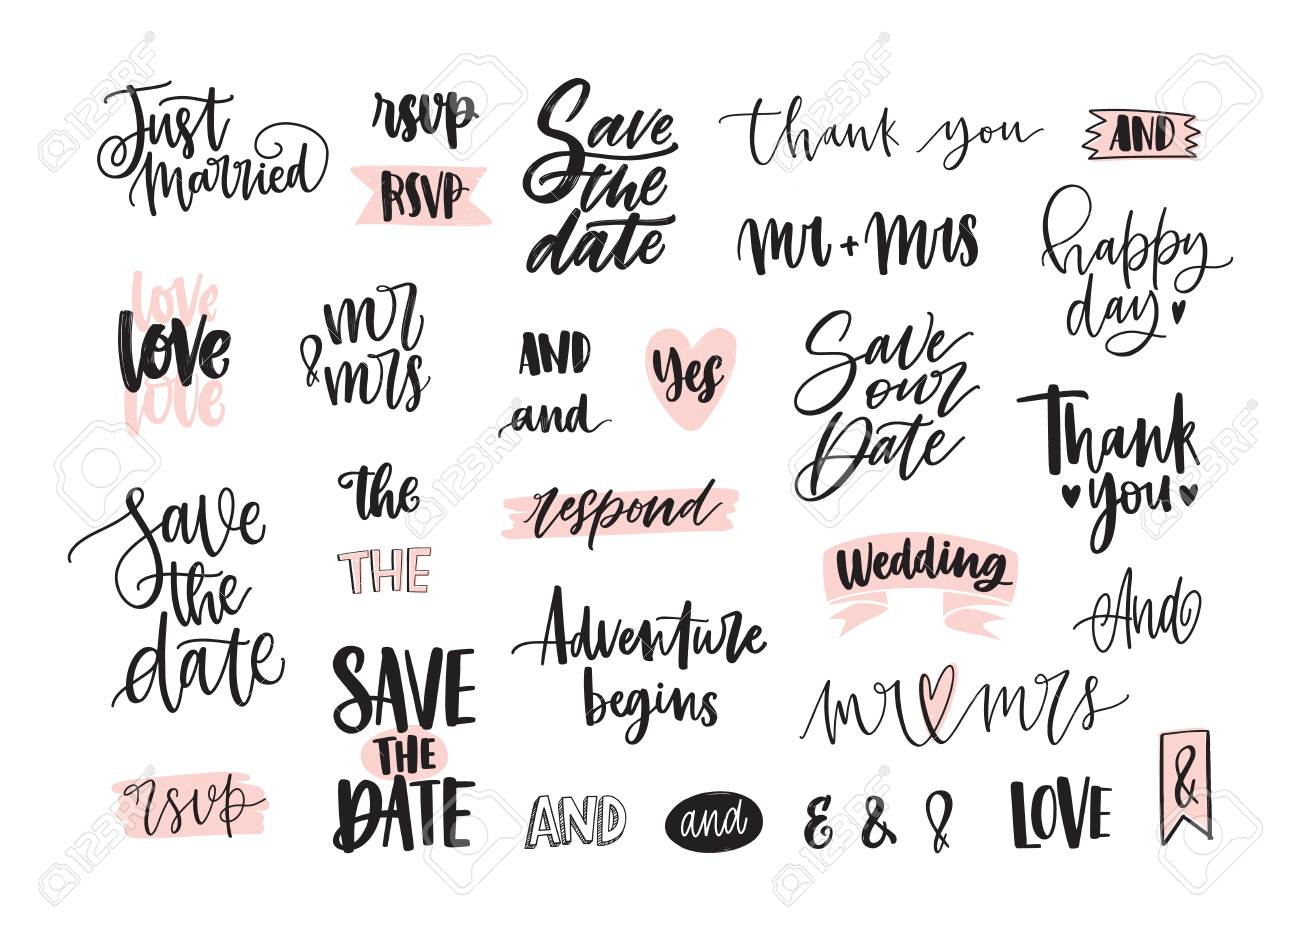 Just
Married
rsvp
RSVP
Save
the
date
thank you
AND
mr + mrs
happy
day
love
love
love
mr
& mrs
AND
and
yes
Save
our
Date
Thank
you
Save
the
date
the
THE
respond
Wedding
Adventure
begins
And
SAVE
THE
DATE
mr mrs
rsvp
AND
and
& & &
LOVE
&
123RF